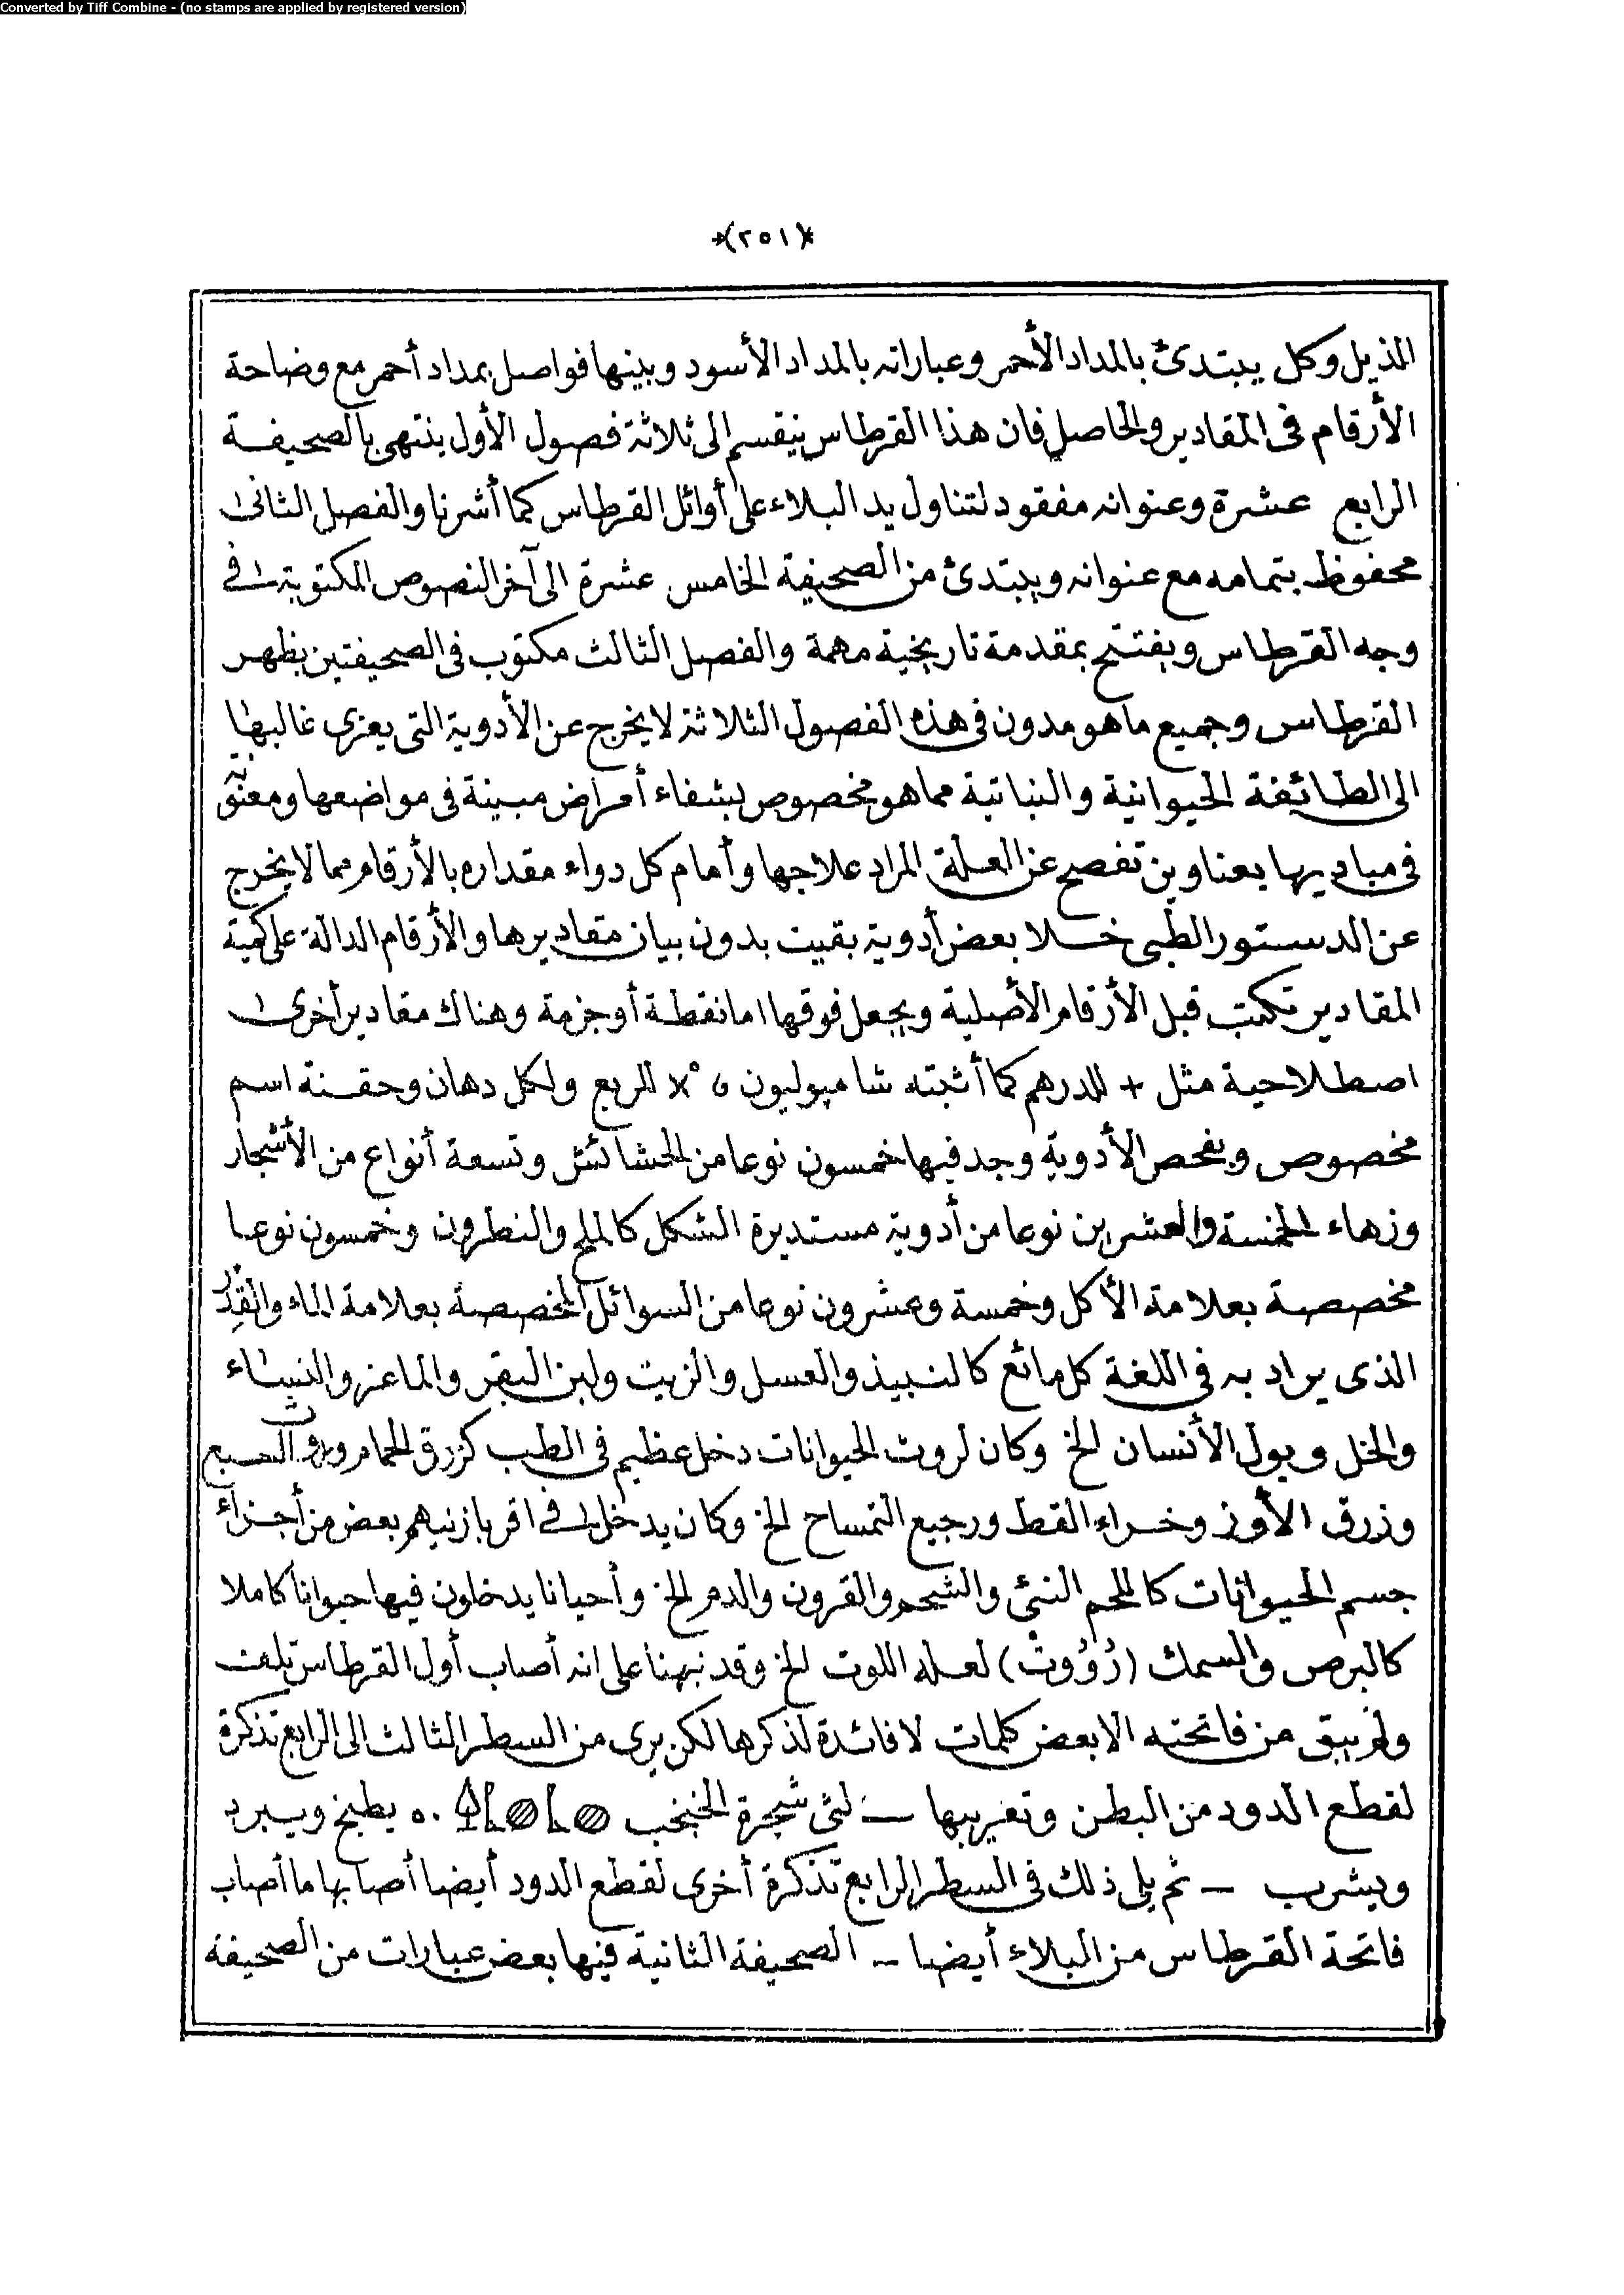 Converted by Tiff Combine - (no stamps are applied by registered version)
*(٢٥١)*
المذيل وكل يبتدئ بالمداد الأحمر وعباراته بالمداد الأسود وبينها فواصل بمداد أحمر مع وضاحة
الأرقام فى المقادير والحاصل فان هذا القرطاس ينقسم الى ثلاثة فصول الأول ينتهى بالصحيفة
الرابع عشرة وعنوانه مفقود لتناول يد البلاء على أوائل القرطاس كما أشرنا والفصل الثانى
محفوظ بتمامه مع عنوانه ويبتدئ من الصحيفة الخامس عشرة الى آخر النصوص المكتوبة فى
وجه القرطاس ويفتتح بمقدمة تاريخية مهمة والفصل الثالث مكتوب فى الصحيفتين بظهر
القرطاس وجميع ما هو مدون فى هذه الفصول الثلاثة لا يخرج عن الأدوية التى يعزى غالبها
الى الطائفة الحيوانية والنباتية مما هو مخصوص بشفاء أمراض مبينة فى مواضعها ومعنونة
فى مباديها بعناوين تفصح عن العلة المراد علاجها وأمام كل دواء مقداره بالأرقام مما لا يخرج
عن الدستور الطبى خلا بعض أدوية بقيت بدون بيان مقاديرها والأرقام الدالة على كمية
المقادير تكتب قبل الأرقام الأصلية ويجعل فوقها اما نقطة أو جزمة وهناك مقادير أخرى
اصطلاحية مثل + للدرهم كما أثبته شامپوليون و x° للربع ولكل دهان وحقنة اسم
مخصوص وبفحص الأدوية وجد فيها خمسون نوعا من الحشائش وتسعة أنواع من الأشجار
وزهاء الخمسة والعشرين نوعا من أدوية مستديرة الشكل كالملح والنطرون وخمسون نوعا
مخصصة بعلامة الأكل وخمسة وعشرون نوعا من السوائل المخصصة بعلامة الماء والقدر
الذى يراد به فى اللغة كل مائع كالنبيذ والعسل والزيت ولبن البقر والماعز والنساء
والخل وبول الأنسان الخ وكان لروث الحيوانات دخل عظيم فى الطب كزرق الحمام وروث
وزرق الأوز وخراء القط ورجيع التمساح الخ وكان يدخل فى اقربازينهم بعض من أجزاء
جسم الحيوانات كاللحم النئ والشحم والقرون والدم الخ وأحيانا يدخلون فيها حيوانا كاملا
كالبرص والسمك لعله اللوت الخ وقد نبهنا على انه أصاب أول القرطاس تلف
ولم يبق من فاتحته الا بعض كلمات لا فائدة لذكرها لكن يرى من السطر الثالث الى الرابع تذكرة
لقطع الدود من البطن وتغريبها — شجرة الخنخب ٥٠ يطبخ ويبرد
ويشرب — ثم يلى ذلك فى السطر الرابع تذكرة أخرى لقطع الدود أيضا أصابها ما أصاب
فاتحة القرطاس من البلاء أيضا — الصحيفة الثانية فيها بعض عبارات من الصحيفة